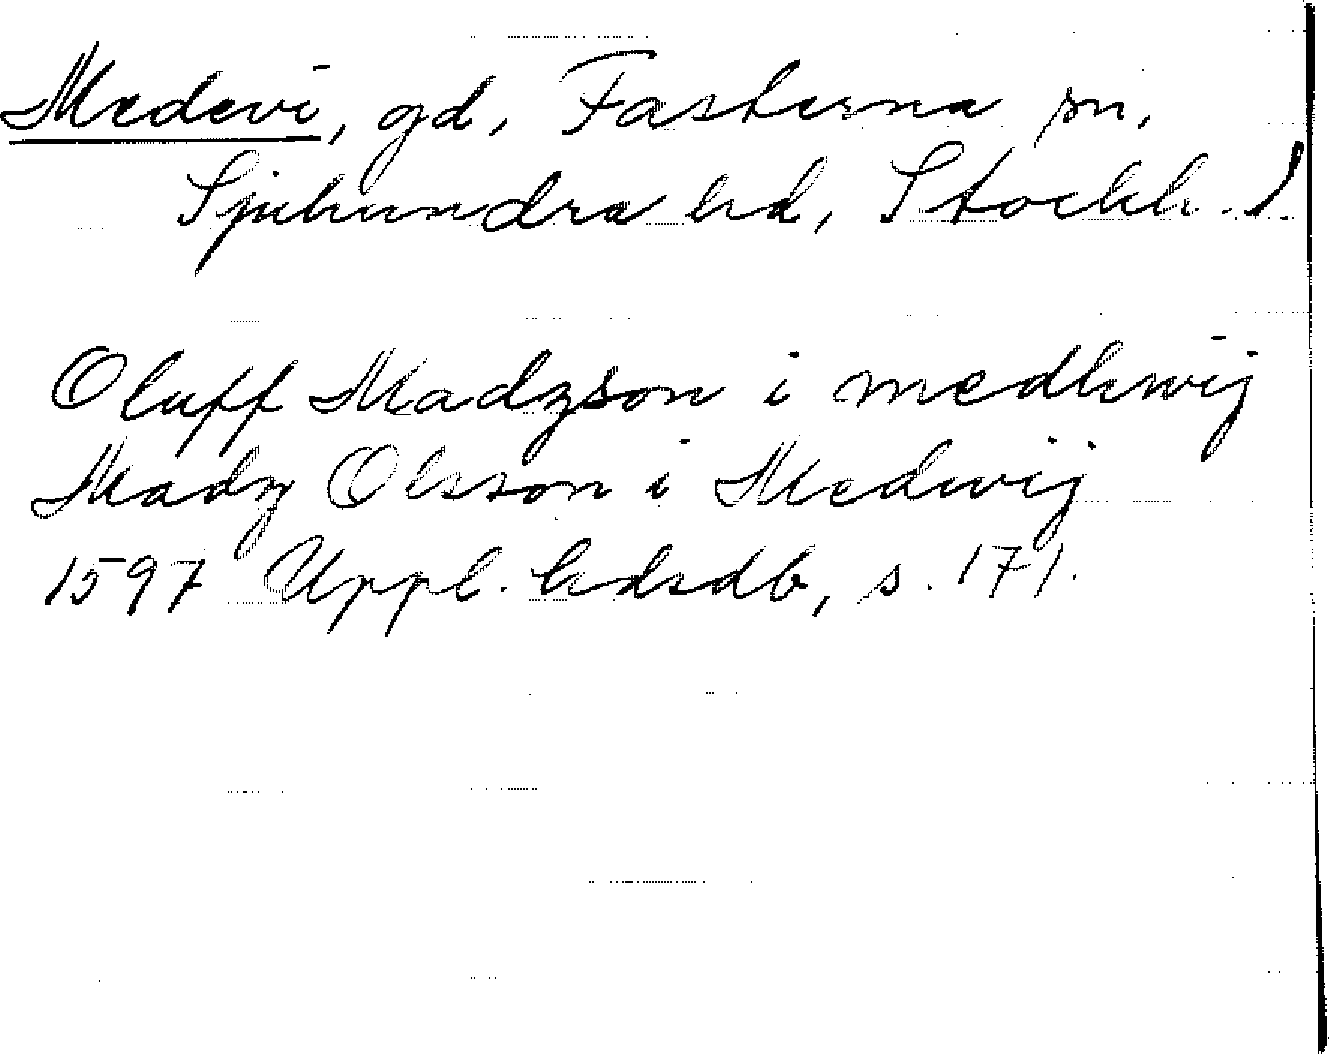 Medevi, gd, Fasterna sn,
Sjuhundra hd, Stockh. l.
Oluff Madzson i medhwij
Madz Olsson i Medwij
1597 Uppl. hdsdb, s. 171.